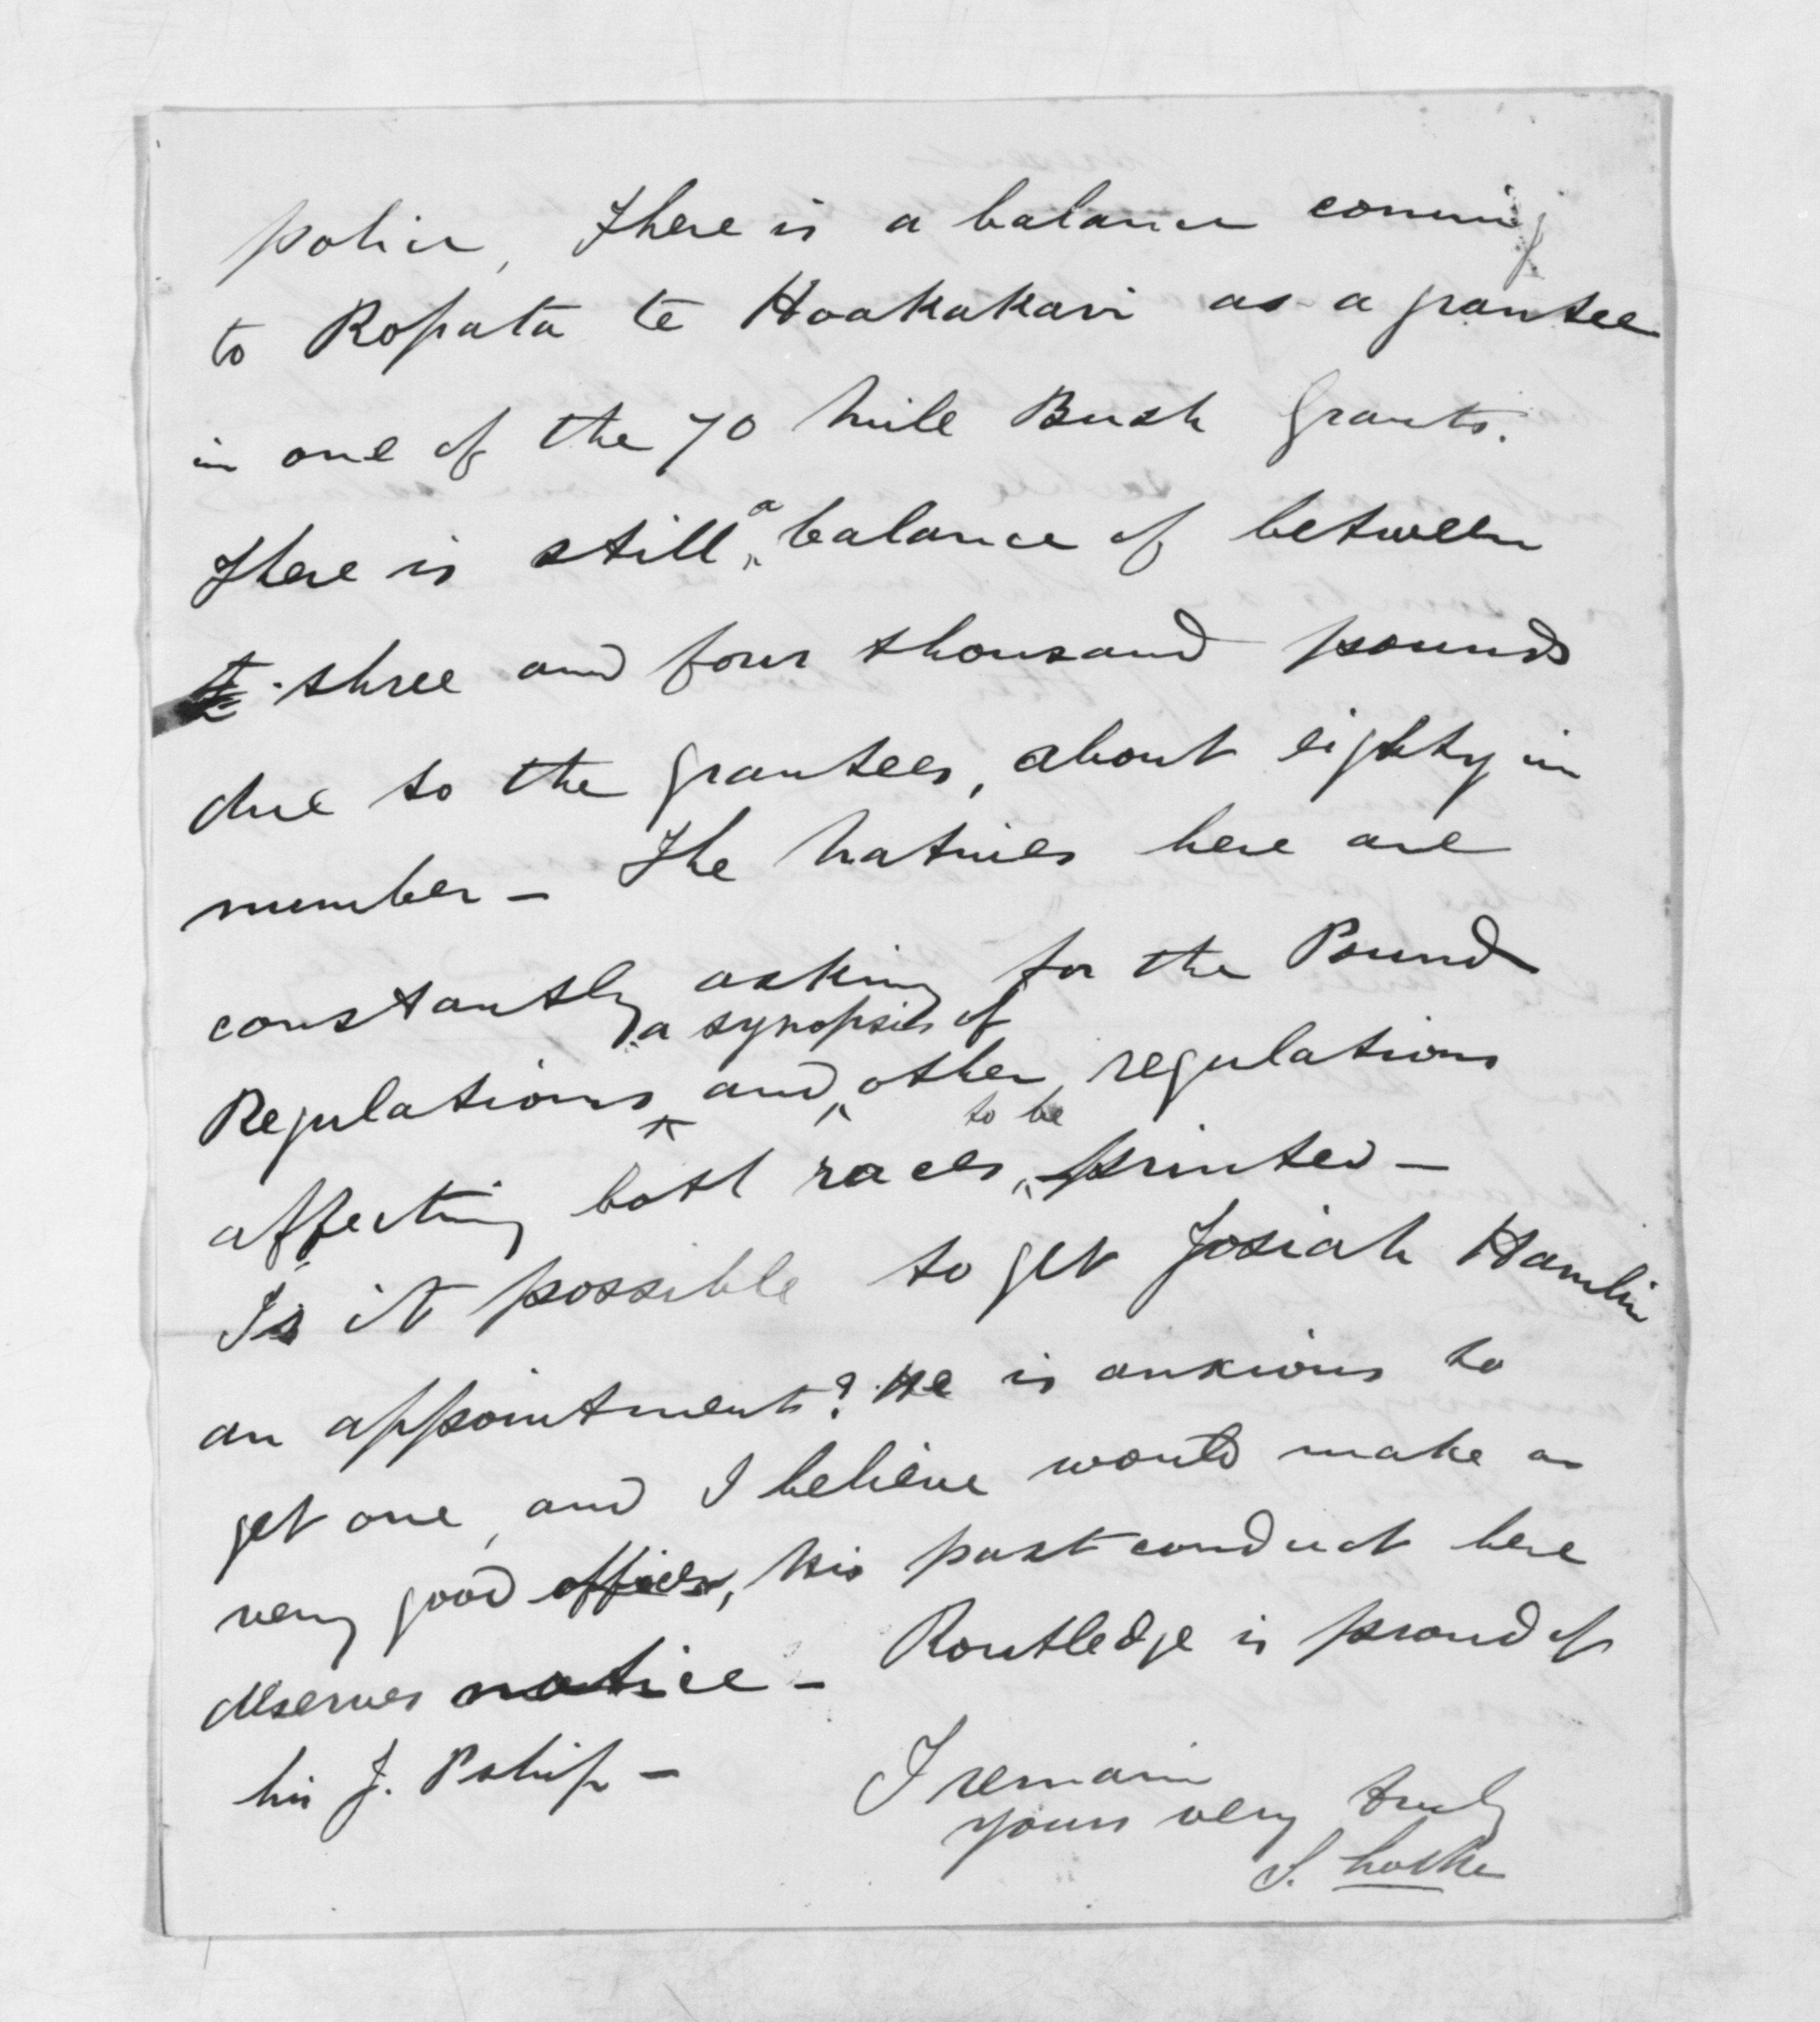 police, There is a balance coming
to Ropata te Hoakakari as a grantee
in one of the 70 Mile Bush Grants.
There is still a balance of between
three and four thousand pounds
due to the grantees, about eighty in
number - The Natives here are
constantly asking for the Pound
a synopsis of
Regulations and other regulations
to be
affecting both races, printed -
Is it possible to get Josiah Hamlin
an appointment? He is anxious to
get one, and I believe would make a
very good officer, his past conduct here
deserves notice - Routledge is proud of
his J. Pship -
I remain
yours very truly
S. Locke